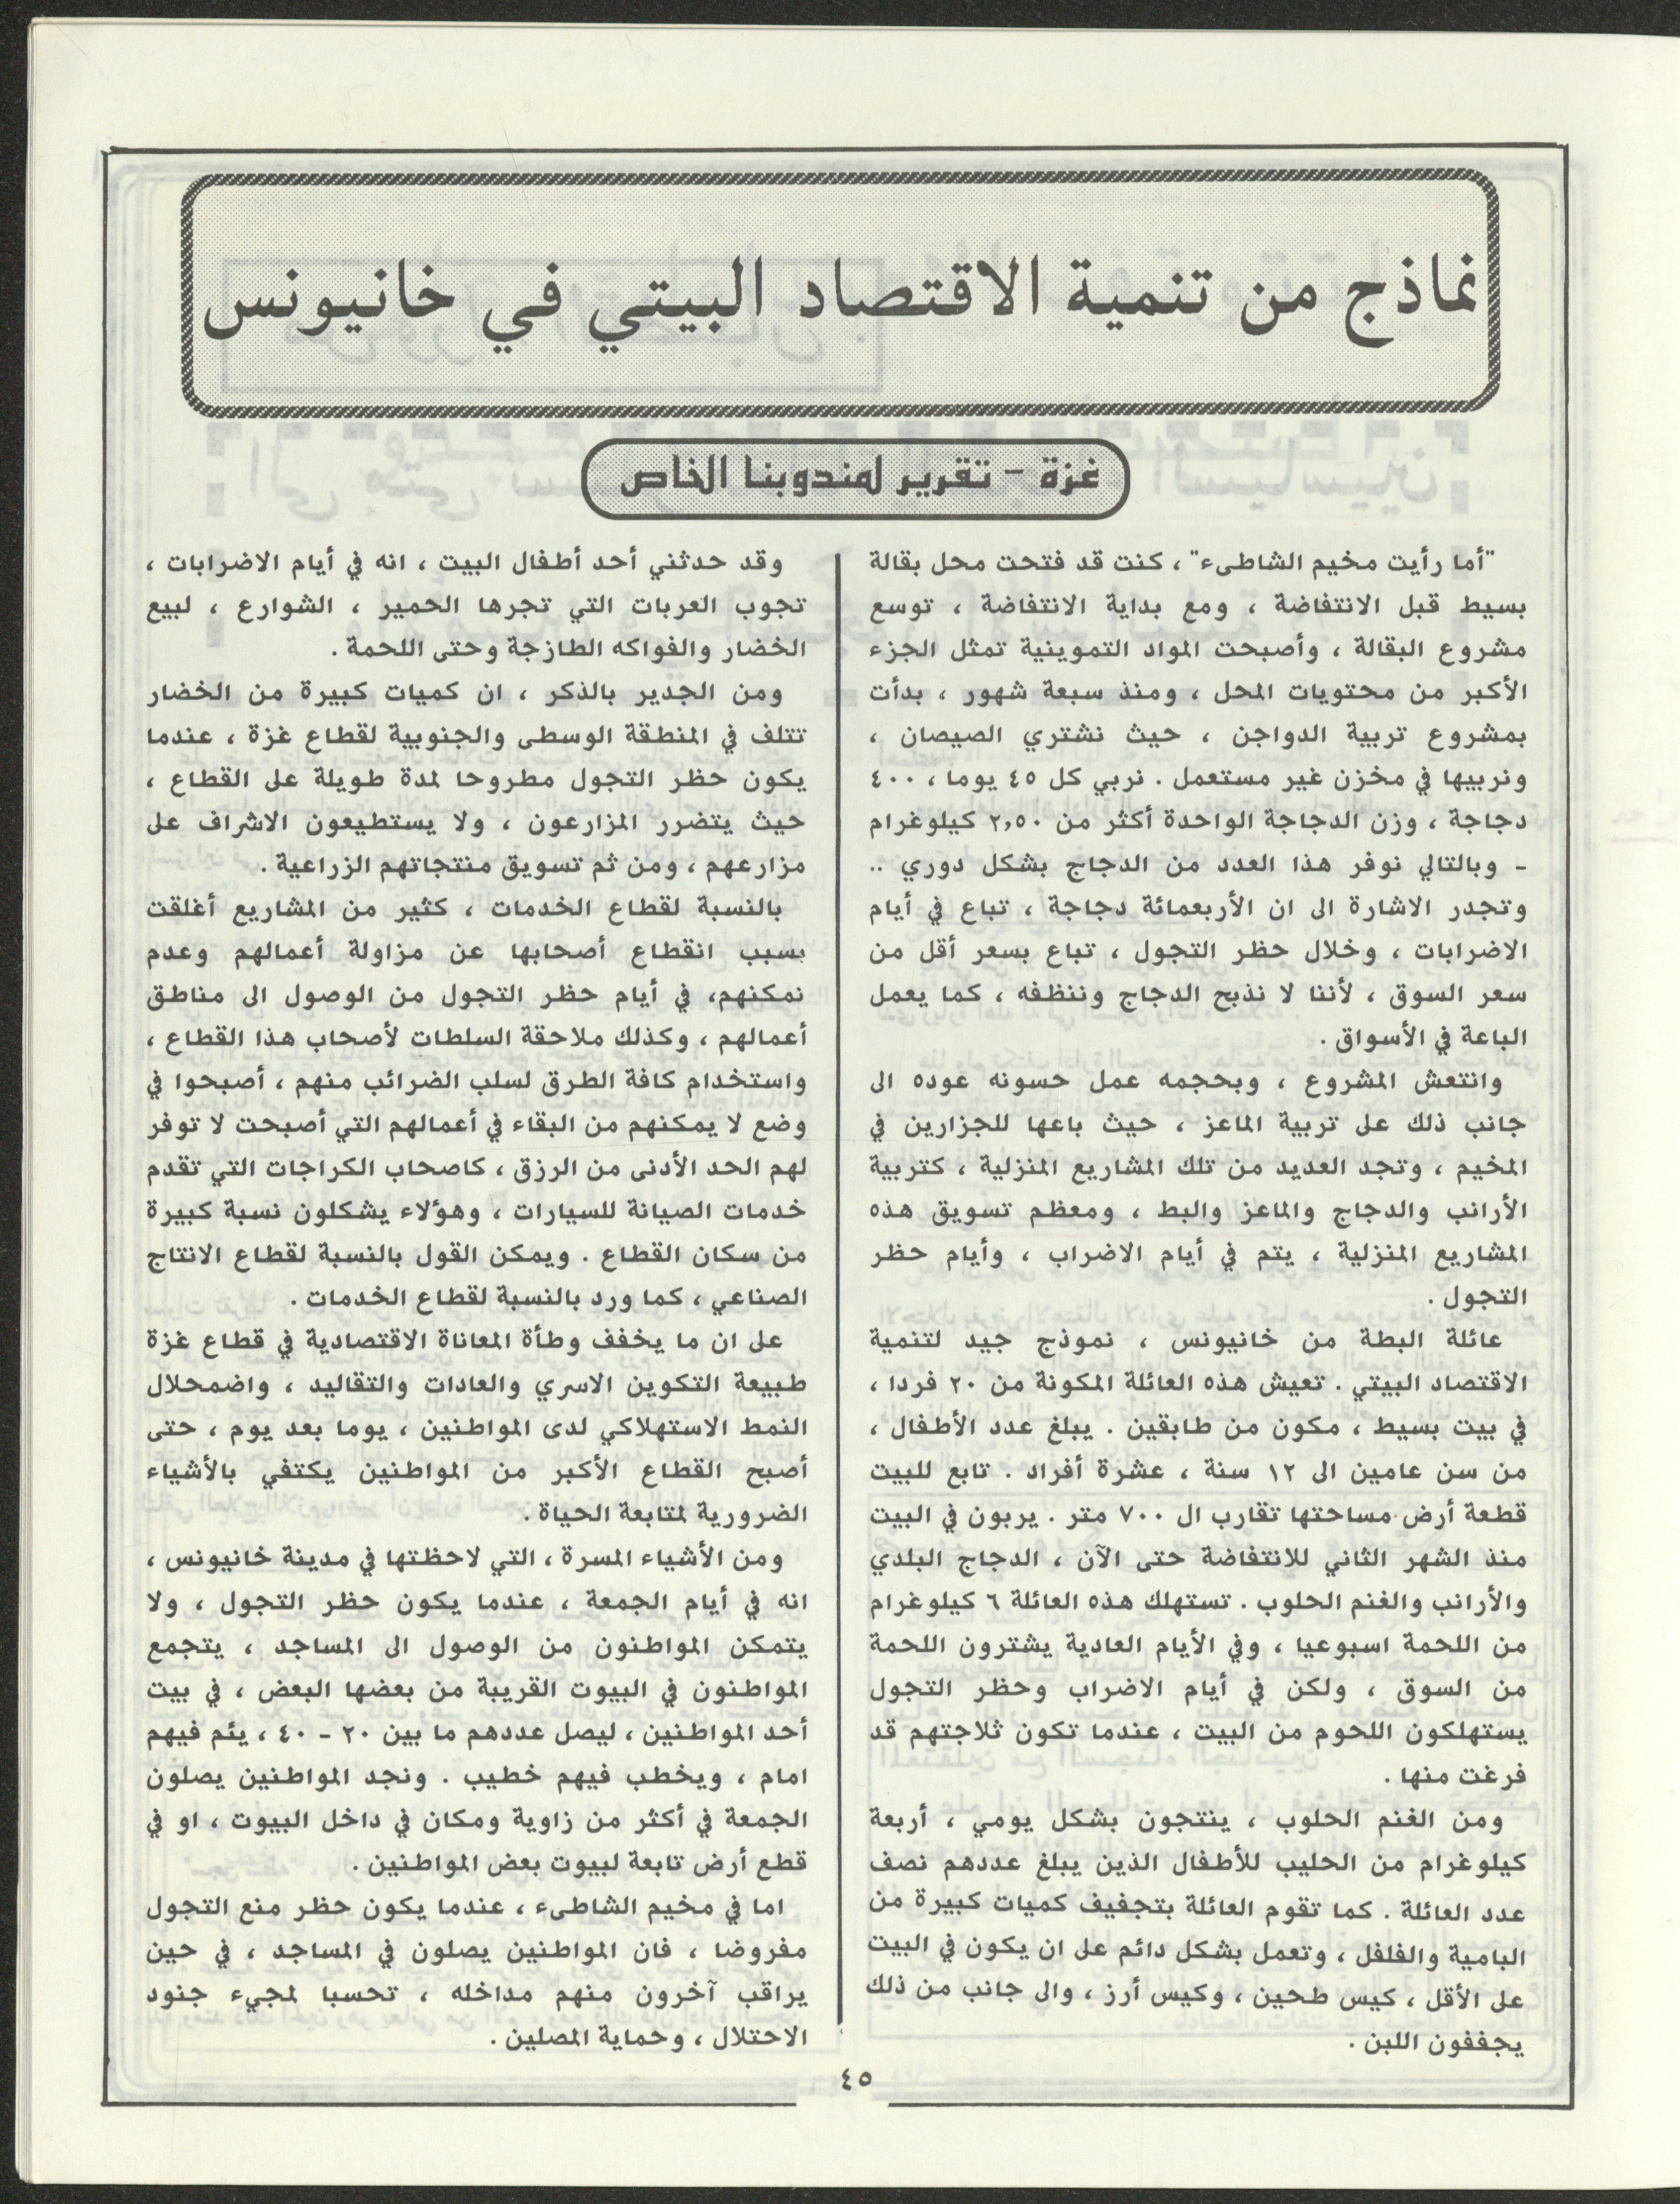 نماذج من تنمية الاقتصاد البيتي في خانيونس
غزة - تقرير لمندوبنا الخاص
"أما رأيت مخيم الشاطىء" ، كنت قد فتحت محل بقالة
بسيط قبل الانتفاضة ، ومع بداية الانتفاضة ، توسع
مشروع البقالة ، وأصبحت المواد التموينية تمثل الجزء
الأكبر من محتويات المحل ، ومنذ سبعة شهور ، بدأت
بمشروع تربية الدواجن ، حيث نشتري الصيصان ،
ونربيها في مخزن غير مستعمل . نربي كل ٤٥ يوما ، ٤٠٠
دجاجة ، وزن الدجاجة الواحدة أكثر من ٢,٥٠ كيلوغرام
- وبالتالي نوفر هذا العدد من الدجاج بشكل دوري ..
وتجدر الاشارة الى ان الأربعمائة دجاجة ، تباع في أيام
الاضرابات ، وخلال حظر التجول ، تباع بسعر أقل من
سعر السوق ، لأننا لا نذبح الدجاج وننظفه ، كما يعمل
الباعة في الأسواق .
وانتعش المشروع ، وبحجمه عمل حسونه عوده الى
جانب ذلك على تربية الماعز ، حيث باعها للجزارين في
المخيم ، وتجد العديد من تلك المشاريع المنزلية ، كتربية
الأرانب والدجاج والماعز والبط ، ومعظم تسويق هذه
المشاريع المنزلية ، يتم في أيام الاضراب ، وأيام حظر
التجول .
عائلة البطة من خانيونس ، نموذج جيد لتنمية
الاقتصاد البيتي . تعيش هذه العائلة المكونة من ٢٠ فردا ،
في بيت بسيط ، مكون من طابقين . يبلغ عدد الأطفال ،
من سن عامين الى ١٢ سنة ، عشرة أفراد . تابع للبيت
قطعة أرض مساحتها تقارب ال ٧٠٠ متر . يربون في البيت
منذ الشهر الثاني للانتفاضة حتى الآن ، الدجاج البلدي
والأرانب والغنم الحلوب . تستهلك هذه العائلة ٦ كيلوغرام
من اللحمة اسبوعيا ، وفي الأيام العادية يشترون اللحمة
من السوق ، ولكن في أيام الاضراب وحظر التجول
يستهلكون اللحوم من البيت ، عندما تكون ثلاجتهم قد
فرغت منها .
ومن الغنم الحلوب ، ينتجون بشكل يومي ، أربعة
كيلوغرام من الحليب للأطفال الذين يبلغ عددهم نصف
عدد العائلة . كما تقوم العائلة بتجفيف كميات كبيرة من
البامية والفلفل ، وتعمل بشكل دائم على ان يكون في البيت
على الأقل ، كيس طحين ، وكيس أرز ، والى جانب من ذلك
يجففون اللبن .
وقد حدثني أحد أطفال البيت ، انه في أيام الاضرابات ،
تجوب العربات التي تجرها الحمير ، الشوارع ، لبيع
الخضار والفواكه الطازجة وحتى اللحمة .
ومن الجدير بالذكر ، ان كميات كبيرة من الخضار
تتلف في المنطقة الوسطى والجنوبية لقطاع غزة ، عندما
يكون حظر التجول مطروحا لمدة طويلة على القطاع ،
حيث يتضرر المزارعون ، ولا يستطيعون الاشراف على
مزارعهم ، ومن ثم تسويق منتجاتهم الزراعية .
بالنسبة لقطاع الخدمات ، كثير من المشاريع أغلقت
بسبب انقطاع أصحابها عن مزاولة أعمالهم وعدم
نمكنهم، في أيام حظر التجول من الوصول الى مناطق
أعمالهم ، وكذلك ملاحقة السلطات لأصحاب هذا القطاع ،
واستخدام كافة الطرق لسلب الضرائب منهم ، أصبحوا في
وضع لا يمكنهم من البقاء في أعمالهم التي أصبحت لا توفر
لهم الحد الأدنى من الرزق ، كاصحاب الكراجات التي تقدم
خدمات الصيانة للسيارات ، وهؤلاء يشكلون نسبة كبيرة
من سكان القطاع . ويمكن القول بالنسبة لقطاع الانتاج
الصناعي ، كما ورد بالنسبة لقطاع الخدمات .
على ان ما يخفف وطأة المعاناة الاقتصادية في قطاع غزة
طبيعة التكوين الاسري والعادات والتقاليد ، واضمحلال
النمط الاستهلاكي لدى المواطنين ، يوما بعد يوم ، حتى
أصبح القطاع الأكبر من المواطنين يكتفي بالأشياء
الضرورية لمتابعة الحياة .
ومن الأشياء المسرة ، التي لاحظتها في مدينة خانيونس ،
انه في أيام الجمعة ، عندما يكون حظر التجول ، ولا
يتمكن المواطنون من الوصول الى المساجد ، يتجمع
المواطنون في البيوت القريبة من بعضها البعض ، في بيت
أحد المواطنين ، ليصل عددهم ما بين ٢٠ - ٤٠ ، يئم فيهم
امام ، ويخطب فيهم خطيب . ونجد المواطنين يصلون
الجمعة في أكثر من زاوية ومكان في داخل البيوت ، او في
قطع أرض تابعة لبيوت بعض المواطنين .
اما في مخيم الشاطىء ، عندما يكون حظر منع التجول
مفروضا ، فان المواطنين يصلون في المساجد ، في حين
يراقب آخرون منهم مداخله ، تحسبا لمجيء جنود
الاحتلال ، وحماية المصلين .
٤٥